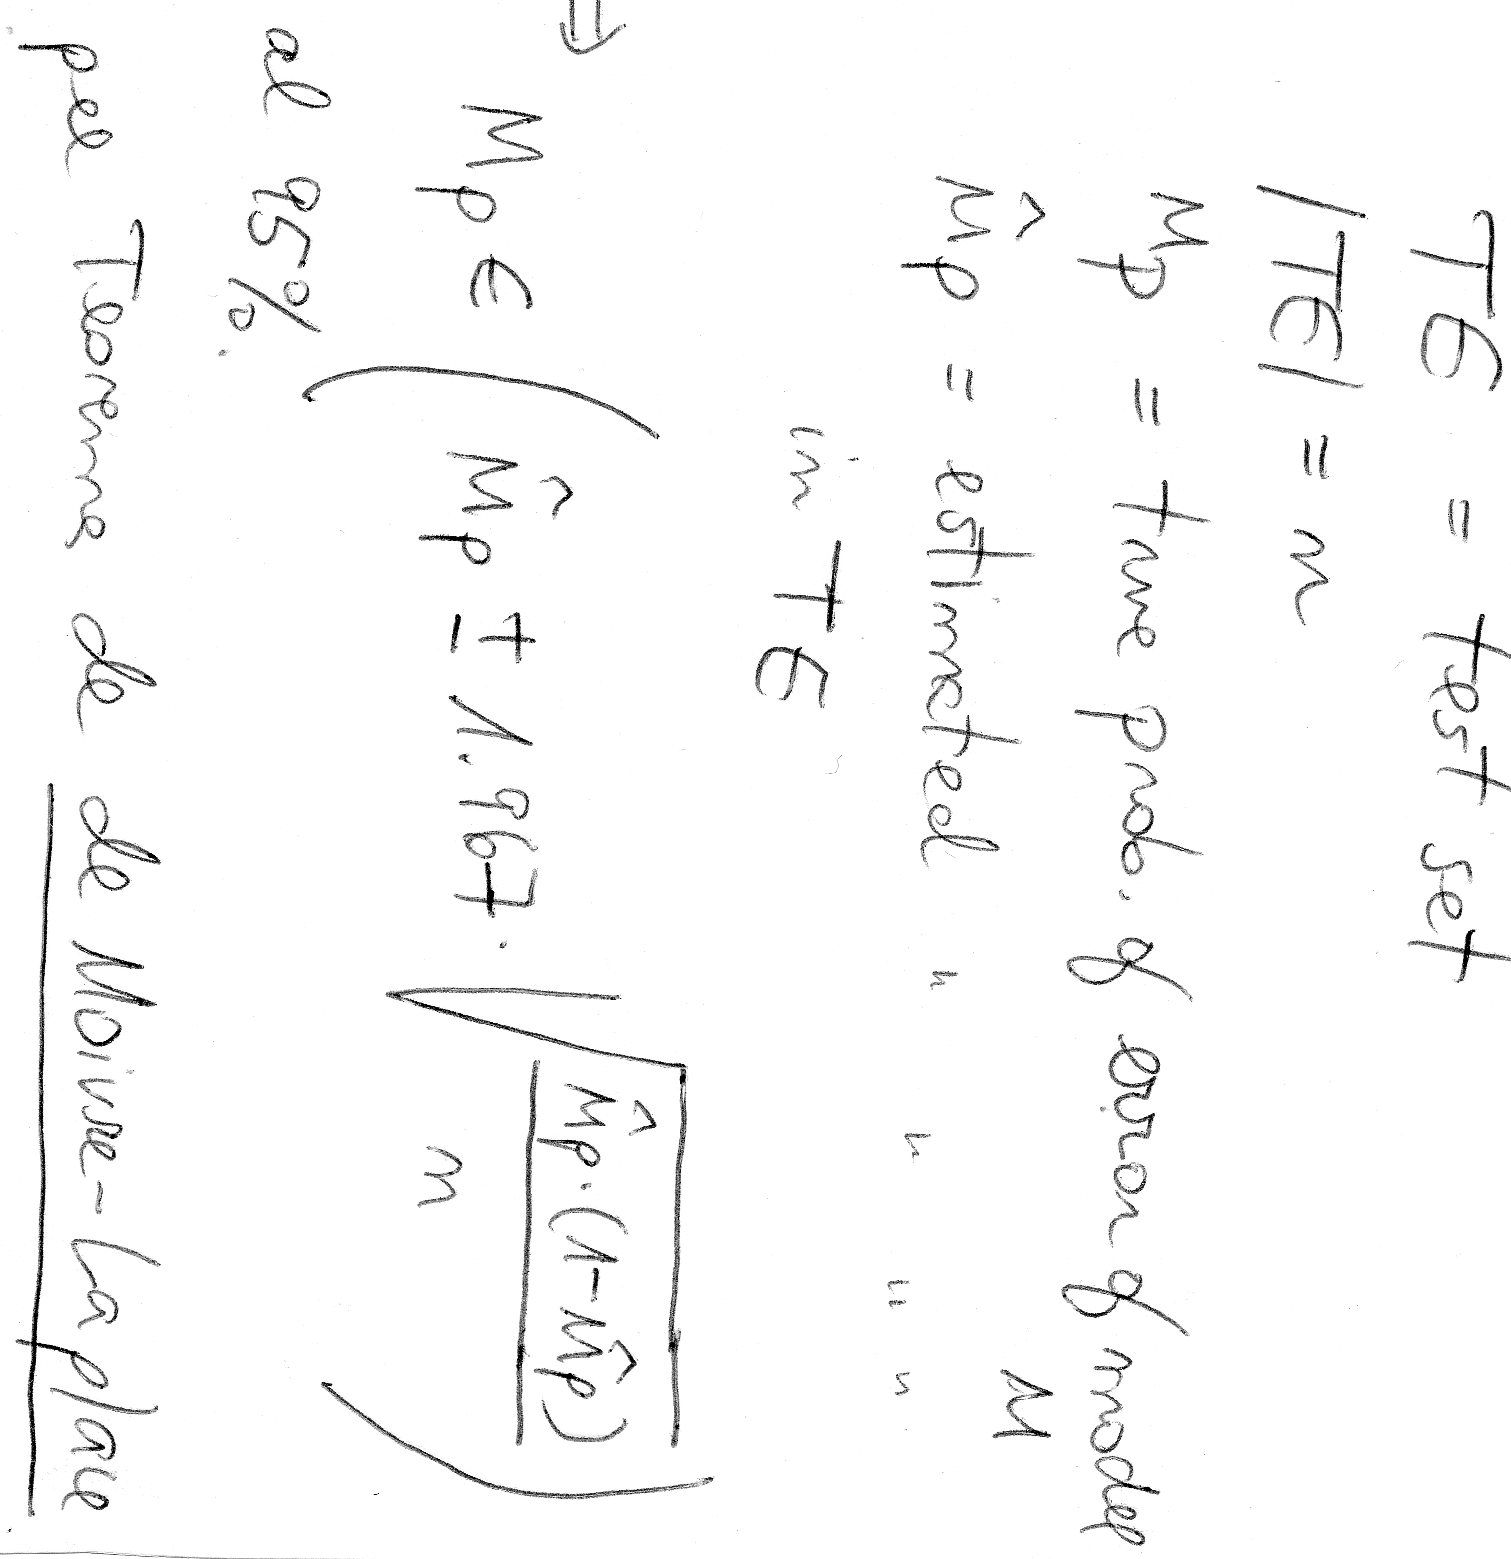 TE = test set
|TE| = n
Mp = true prob. of error of model
M
M̂p = estimated " " " "
in TE
⇒ Mp ∈ ( M̂p ± 1.967 · √( M̂p · (1 - M̂p) / n ) )
al 95%.
pel Teorema de de Moivre-Laplace